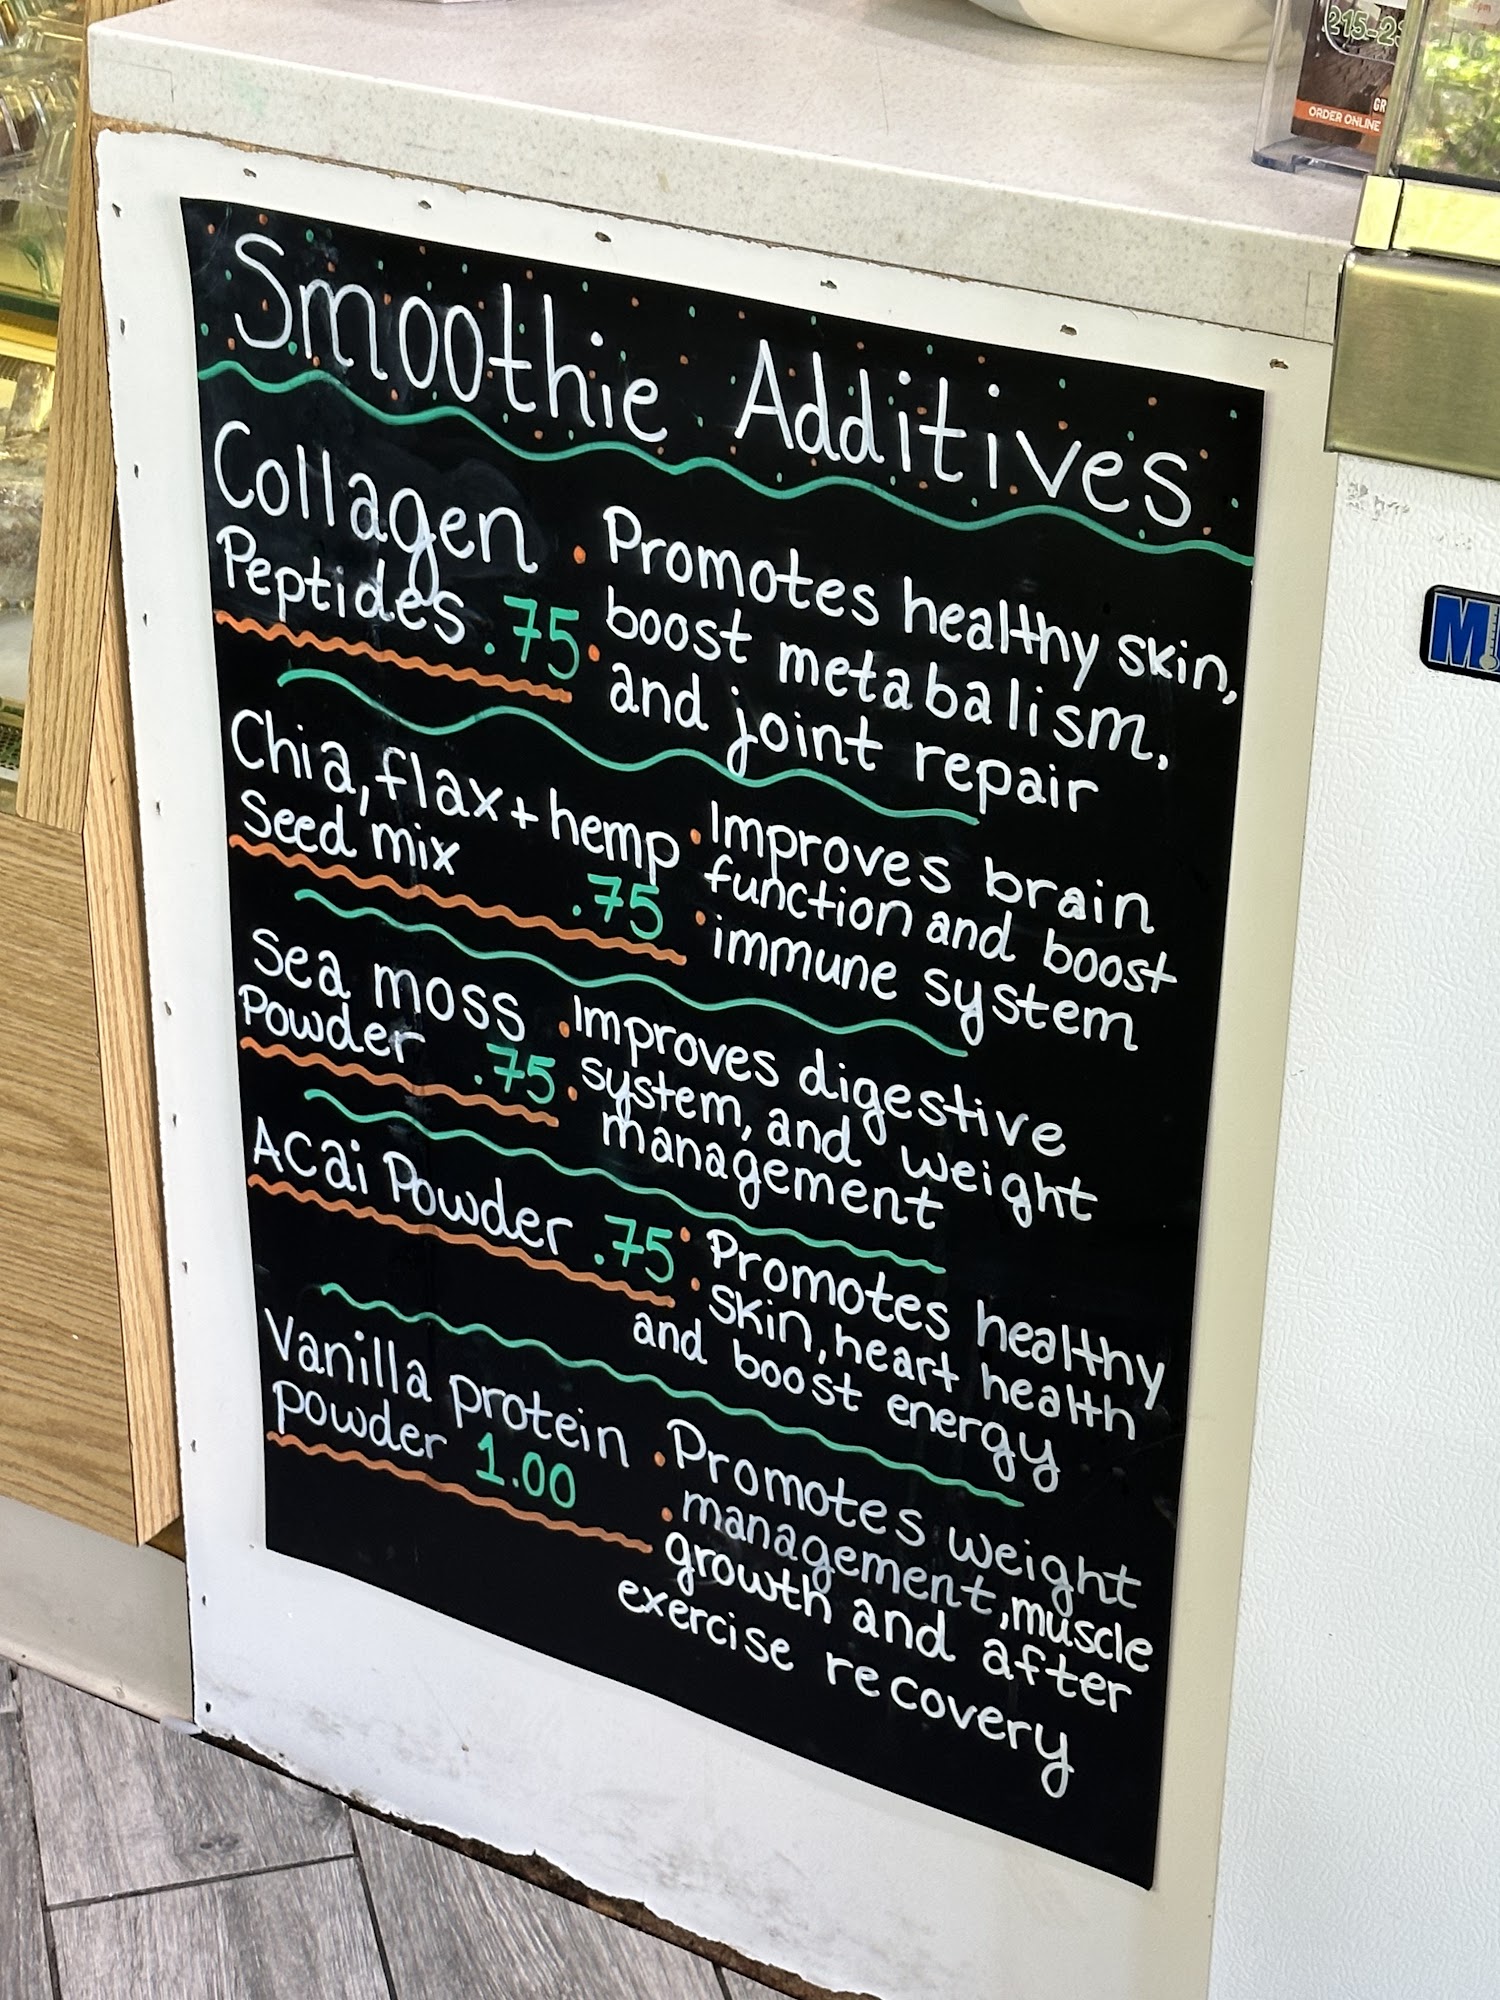 215-2
GR
ORDER ONLINE
Smoothie Additives
Collagen
Peptides .75
• Promotes healthy skin,
• boost metabalism,
and joint repair
Chia, flax + hemp
Seed mix .75
• Improves brain
function and boost
• immune system
Sea moss
Powder .75
• Improves digestive
• system, and weight
management
Acai Powder .75
• Promotes healthy
• skin, heart health
and boost energy
Vanilla protein
powder 1.00
• Promotes weight
• management, muscle
growth and after
exercise recovery
M